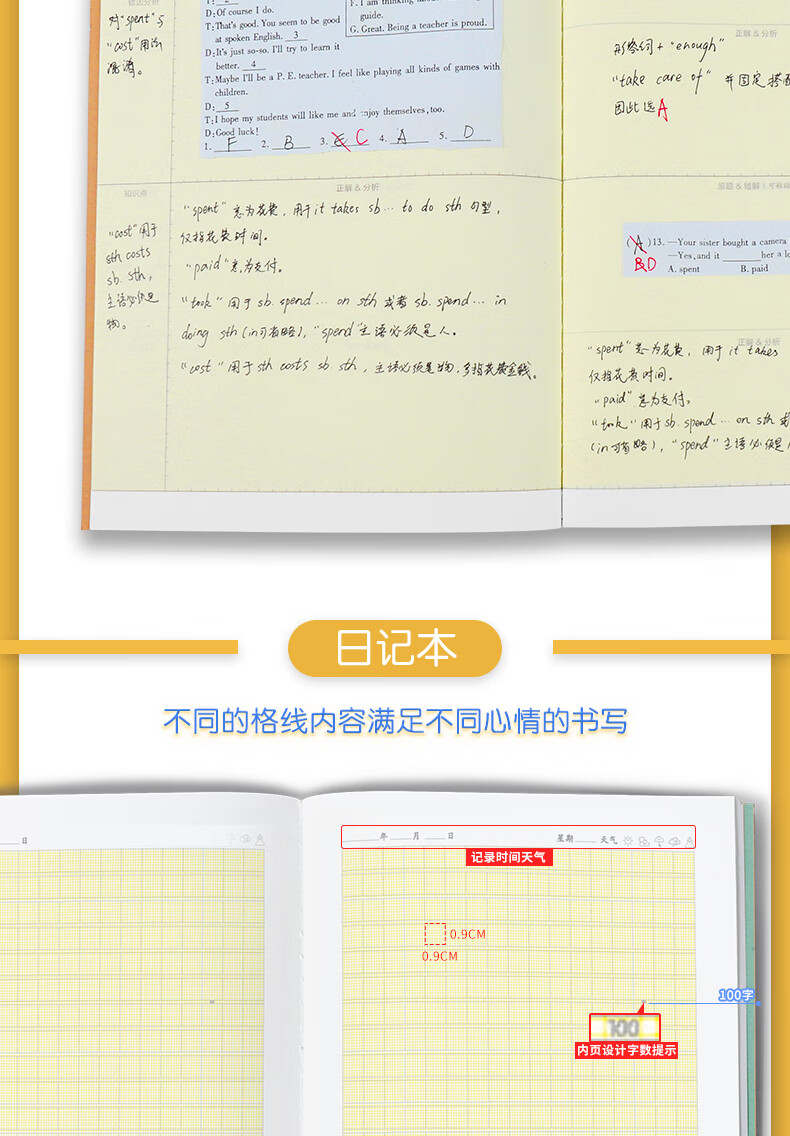 错因分析
对"spent"与
"cost"用法
混淆。
D: Of course I do.
T: That's good. You seem to be good
at spoken English. 3
D: It's just so-so. I'll try to learn it
better. 4
T: Maybe I'll be a P. E. teacher. I feel like playing all kinds of games with
children.
D: 5
T: I hope my students will like me and enjoy themselves, too.
D: Good luck!
1. F 2. B 3. E C 4. A 5. D
guide.
G. Great. Being a teacher is proud.
知识点
"cost"用于
sth costs
sb. sth,
主语必须是
物。
正解 & 分析
"spent"意为花费，用于it takes sb… to do sth 句型，
仅指花费时间。
"paid"意为支付。
"took"用于sb. spend… on sth 或者 sb. spend… in
doing sth (in可省略)，"spend"主语必须是人。
"cost"用于sth costs sb. sth，主语必须是物，多指花费金钱。
正解 & 分析
形容词+"enough"
"take care of" 并固定搭配
因此选A
原题 & 错解
(A)13. —Your sister bought a camera
BD —Yes, and it ______ her a lo
A. spent B. paid
正解 & 分析
"spent"意为花费，用于it takes
仅指花费时间。
"paid"意为支付。
"took"用于sb. spend… on sth 或
(in可省略)，"spend"主语必须是人
日记本
不同的格线内容满足不同心情的书写
日
年 月 日 星期 天气
记录时间天气
0.9CM
0.9CM
100字
100
内页设计字数提示